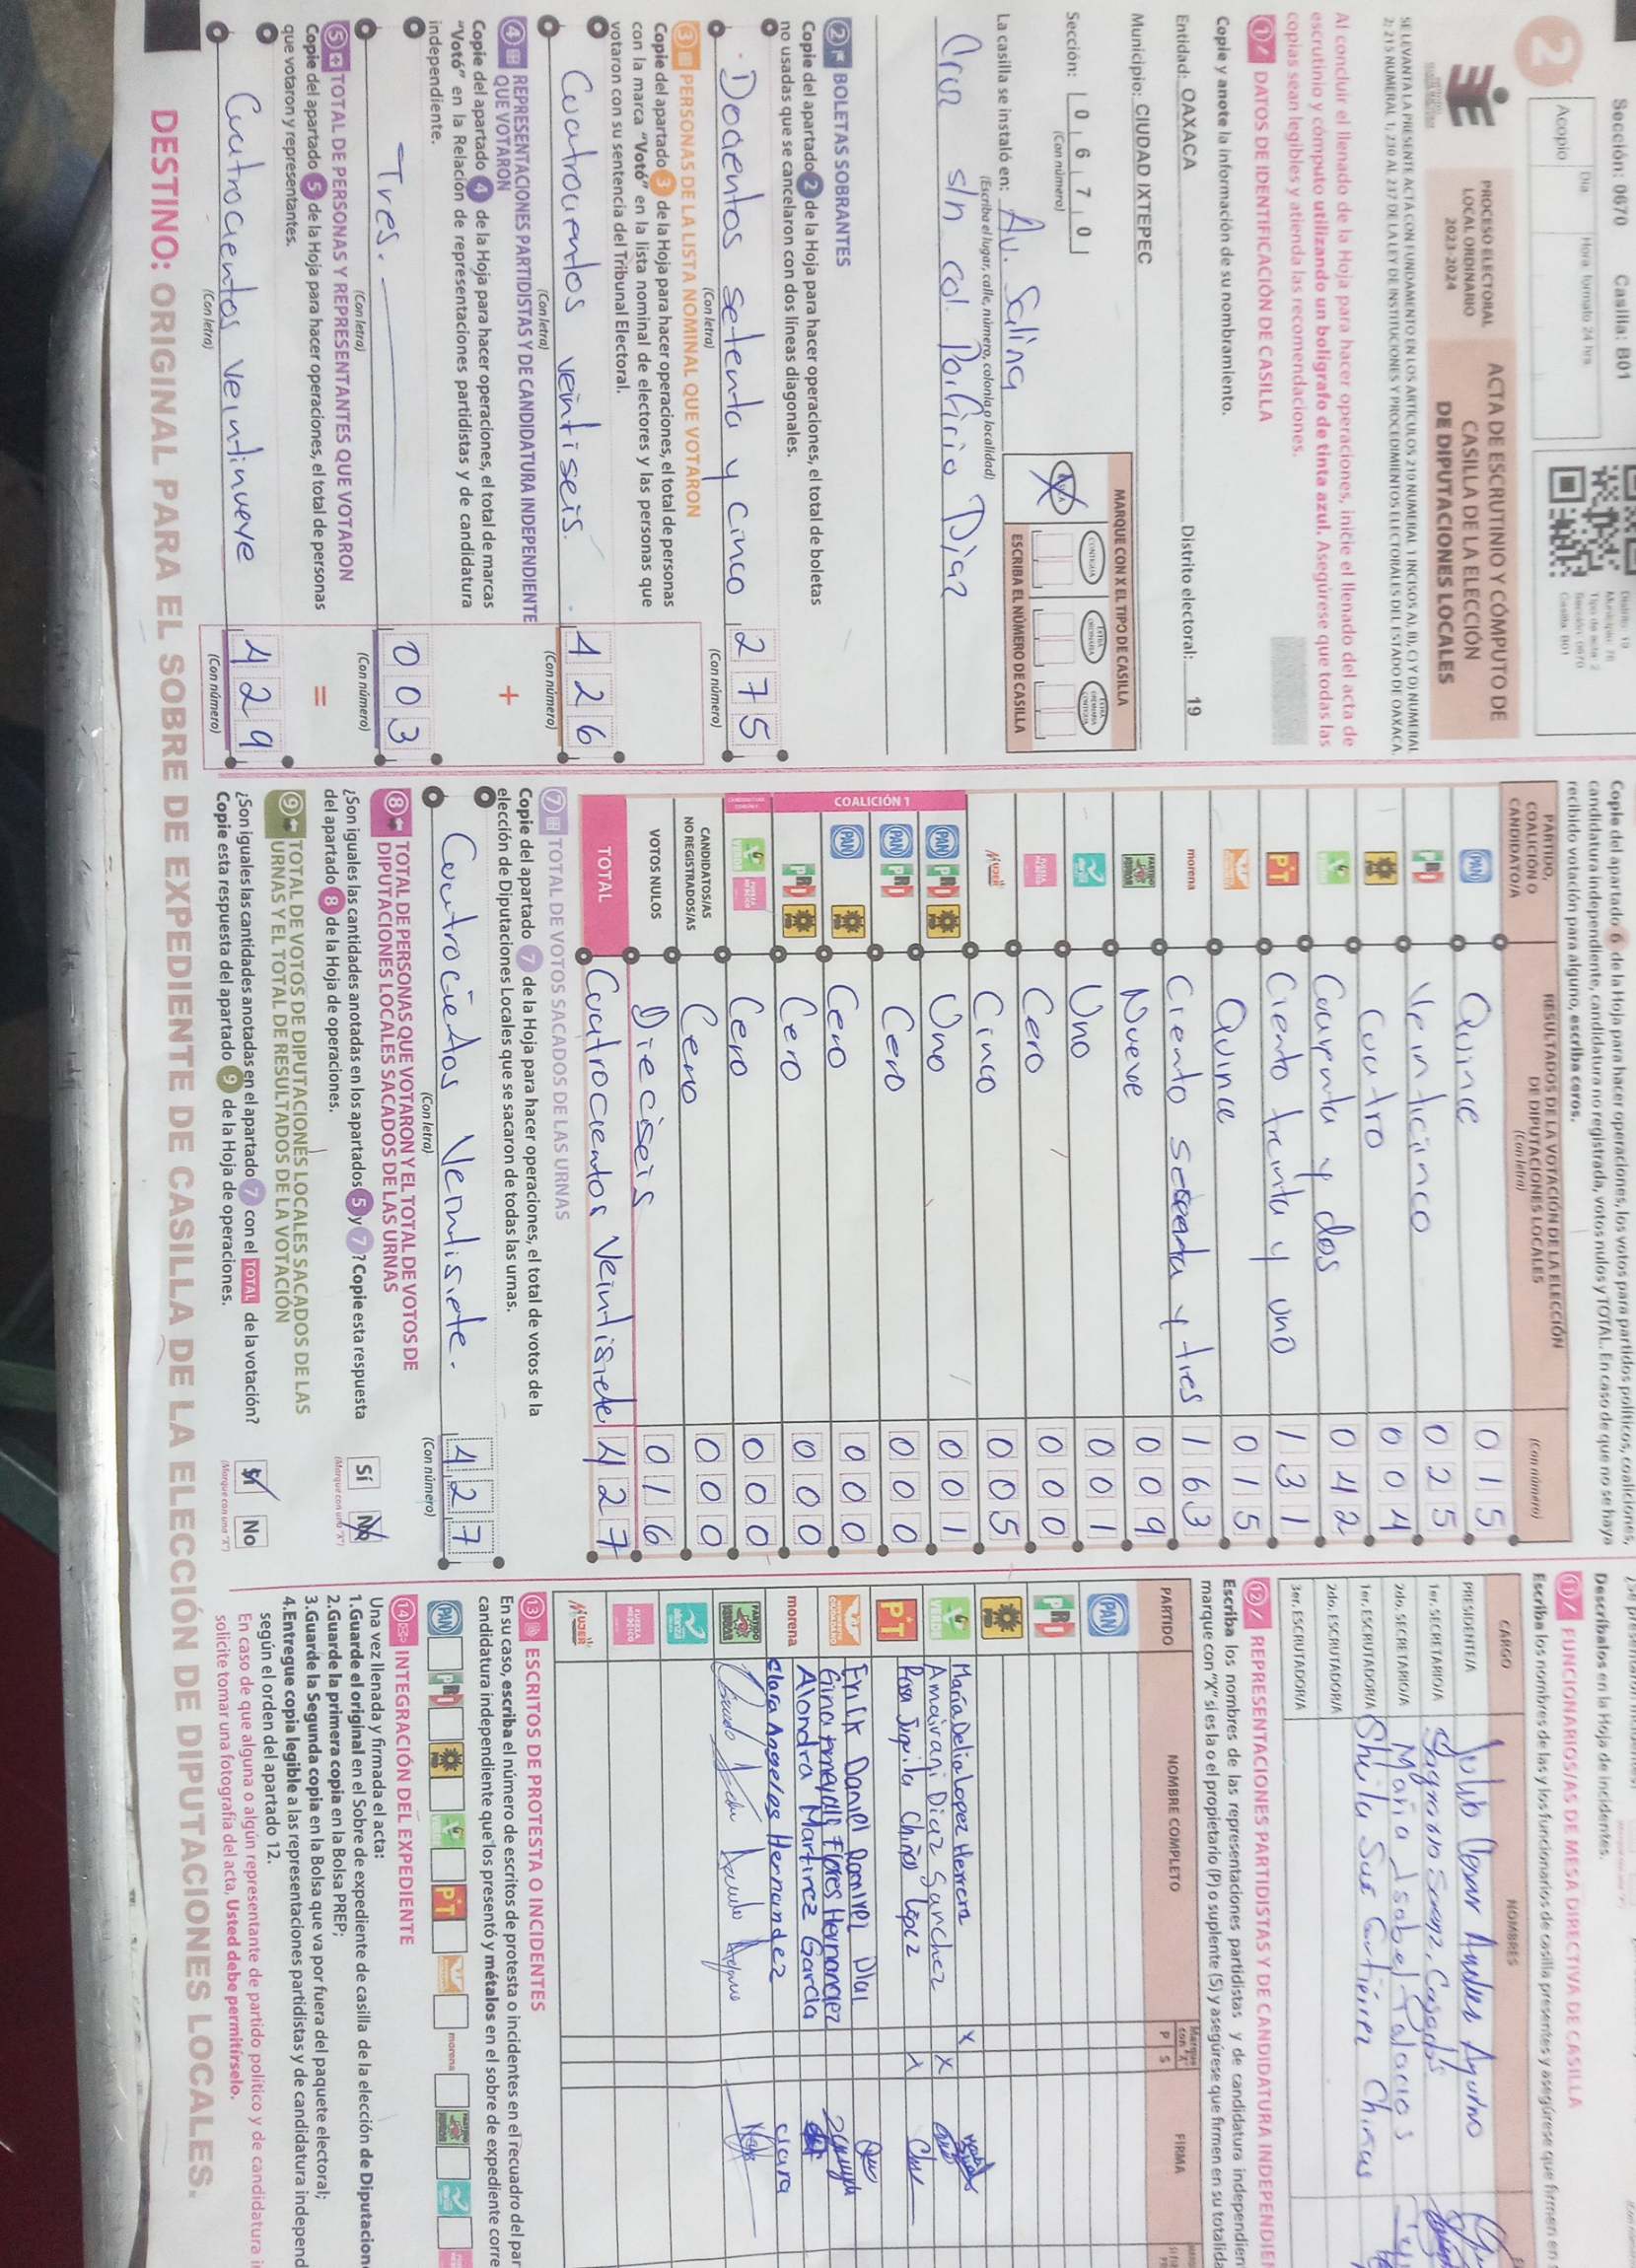 Sección: 0670 Casilla: B01
2
Acopio
Día
Hora formato 24 hrs
Distrito: 19
Municipio: 76
Tipo de acta: 2
Sección: 0670
Casilla: B01
PROCESO ELECTORAL
LOCAL ORDINARIO
2023-2024
ACTA DE ESCRUTINIO Y CÓMPUTO DE
CASILLA DE LA ELECCIÓN
DE DIPUTACIONES LOCALES
SE LEVANTA LA PRESENTE ACTA CON FUNDAMENTO EN LOS ARTÍCULOS 210 NUMERAL 1 INCISOS A), B), C) Y D) NUMERAL
2; 215 NUMERAL 1; 230 AL 237 DE LA LEY DE INSTITUCIONES Y PROCEDIMIENTOS ELECTORALES DEL ESTADO DE OAXACA.
Al concluir el llenado de la Hoja para hacer operaciones, inicie el llenado del acta de
escrutinio y cómputo utilizando un bolígrafo de tinta azul. Asegúrese que todas las
copias sean legibles y atienda las recomendaciones.
1 DATOS DE IDENTIFICACIÓN DE CASILLA
Copie y anote la información de su nombramiento.
Entidad: OAXACA Distrito electoral: 19
Municipio: CIUDAD IXTEPEC
Sección: 0 6 7 0
(Con número)
MARQUE CON X EL TIPO DE CASILLA
BÁSICA
CONTIGUA
EXTRA
ORDINARIA
EXTRA
ORDINARIA
CONTIGUA
ESCRIBA EL NÚMERO DE CASILLA
La casilla se instaló en: Av. Salina
(Escriba el lugar, calle, número, colonia o localidad)
Cruz s/n col. Porfirio Díaz
2 BOLETAS SOBRANTES
Copie del apartado 2 de la Hoja para hacer operaciones, el total de boletas
no usadas que se cancelaron con dos líneas diagonales.
Docientos setenta y cinco 2 7 5
(Con letra) (Con número)
3 PERSONAS DE LA LISTA NOMINAL QUE VOTARON
Copie del apartado 3 de la Hoja para hacer operaciones, el total de personas
con la marca "Votó" en la lista nominal de electores y las personas que
votaron con su sentencia del Tribunal Electoral.
Cuatrocientos veintiseis. 4 2 6
(Con letra) (Con número)
4 REPRESENTACIONES PARTIDISTAS Y DE CANDIDATURA INDEPENDIENTE
QUE VOTARON
+
Copie del apartado 4 de la Hoja para hacer operaciones, el total de marcas
"Votó" en la Relación de representaciones partidistas y de candidatura
independiente.
Tres. 0 0 3
(Con letra) (Con número)
5 TOTAL DE PERSONAS Y REPRESENTANTES QUE VOTARON
=
Copie del apartado 5 de la Hoja para hacer operaciones, el total de personas
que votaron y representantes.
Cuatrocientos veintinueve 4 2 9
(Con letra) (Con número)
Copie del apartado 6 de la Hoja para hacer operaciones, los votos para partidos políticos, coaliciones,
candidatura independiente, candidatura no registrada, votos nulos y TOTAL. En caso de que no se haya
recibido votación para alguno, escriba ceros.
PARTIDO,
COALICIÓN O
CANDIDATO/A
RESULTADOS DE LA VOTACIÓN DE LA ELECCIÓN
DE DIPUTACIONES LOCALES
(Con letra)
(Con número)
PAN Quince 0 1 5
PRI Veinticinco 0 2 5
PRD Cuatro 0 0 4
VERDE Cuarenta y dos 0 4 2
PT Ciento treinta y uno 1 3 1
Quince 0 1 5
morena Ciento sesenta y tres 1 6 3
Nueve 0 0 9
alianza Uno 0 0 1
FUERZA MÉXICO Cero 0 0 0
MUJER Cinco 0 0 5
COALICIÓN 1
PAN PRI PRD Uno 0 0 1
PAN PRI Cero 0 0 0
PAN PRD Cero 0 0 0
PRI PRD Cero 0 0 0
VERDE FUERZA MÉXICO Cero 0 0 0
CANDIDATOS/AS
NO REGISTRADOS/AS Cero 0 0 0
VOTOS NULOS Dieciseis 0 1 6
TOTAL Cuatrocientos Veintisiete 4 2 7
7 TOTAL DE VOTOS SACADOS DE LAS URNAS
Copie del apartado 7 de la Hoja para hacer operaciones, el total de votos de la
elección de Diputaciones Locales que se sacaron de todas las urnas.
Cuatrocietos Veintisiete. 4 2 7
(Con letra) (Con número)
8 TOTAL DE PERSONAS QUE VOTARON Y EL TOTAL DE VOTOS DE
DIPUTACIONES LOCALES SACADOS DE LAS URNAS
¿Son iguales las cantidades anotadas en los apartados 5 y 7? Copie esta respuesta
del apartado 8 de la Hoja de operaciones.
Sí No
(Marque con una "X")
9 TOTAL DE VOTOS DE DIPUTACIONES LOCALES SACADOS DE LAS
URNAS Y EL TOTAL DE RESULTADOS DE LA VOTACIÓN
¿Son iguales las cantidades anotadas en el apartado 7 con el TOTAL de la votación?
Copie esta respuesta del apartado 9 de la Hoja de operaciones.
Sí No
(Marque con una "X")
Descríbalos en la Hoja de incidentes.
11 FUNCIONARIOS/AS DE MESA DIRECTIVA DE CASILLA
Escriba los nombres de las y los funcionarios de casilla presentes y asegúrese que firmen en
CARGO NOMBRES
PRESIDENTE/A Julio Cesar Aquino
1er. SECRETARIO/A
2do. SECRETARIO/A María Isabel Palacios
1er. ESCRUTADOR/A Sheila Sue Gutiérrez Chiñas
2do. ESCRUTADOR/A
3er. ESCRUTADOR/A
12 REPRESENTACIONES PARTIDISTAS Y DE CANDIDATURA INDEPENDIEN
Escriba los nombres de las representaciones partidistas y de candidatura independien
marque con "X" si es la o el propietario (P) o suplente (S) y asegúrese que firmen en su totalida
PARTIDO NOMBRE COMPLETO Marque con "X" P S FIRMA
PAN
PRI
PRD
VERDE María Delia Lopez Herrera X
Amairani Diaz Sanchez X
PT Rosa Juquila Chiñas Lopez X
Erik Daniel Ramirez Diaz
Gina Flores Hernandez
morena Alondra Martinez Garcia
Clara Angeles Hernandez clara
alianza
FUERZA MÉXICO
MUJER
13 ESCRITOS DE PROTESTA O INCIDENTES
En su caso, escriba el número de escritos de protesta o incidentes en el recuadro del par
candidatura independiente que los presentó y métalos en el sobre de expediente corre
PAN PRI PRD VERDE PT morena
14 INTEGRACIÓN DEL EXPEDIENTE
Una vez llenada y firmada el acta:
1.Guarde el original en el Sobre de expediente de casilla de la elección de Diputacion
2.Guarde la primera copia en la Bolsa PREP;
3.Guarde la Segunda copia en la Bolsa que va por fuera del paquete electoral;
4.Entregue copia legible a las representaciones partidistas y de candidatura independ
según el orden del apartado 12.
En caso de que alguna o algún representante de partido político y de candidatura i
solicite tomar una fotografía del acta, Usted debe permitírselo.
DESTINO: ORIGINAL PARA EL SOBRE DE EXPEDIENTE DE CASILLA DE LA ELECCIÓN DE DIPUTACIONES LOCALES.